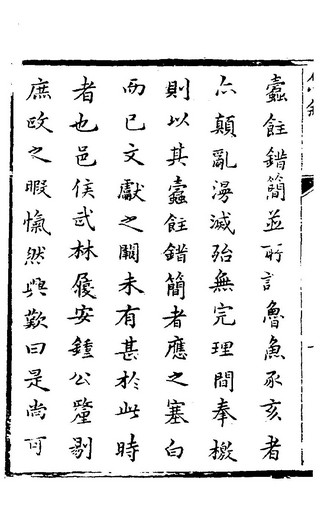 蠹飳錯簡並所訁魯魚豕亥者
亦顛亂漫滅殆無完理間奉檄
則以其蠹飳錯簡者應之塞白
而已文獻之闕未有甚於此時
者也邑侯武林履安鍾公釐剔
庶政之暇愾然興歎曰是尚可